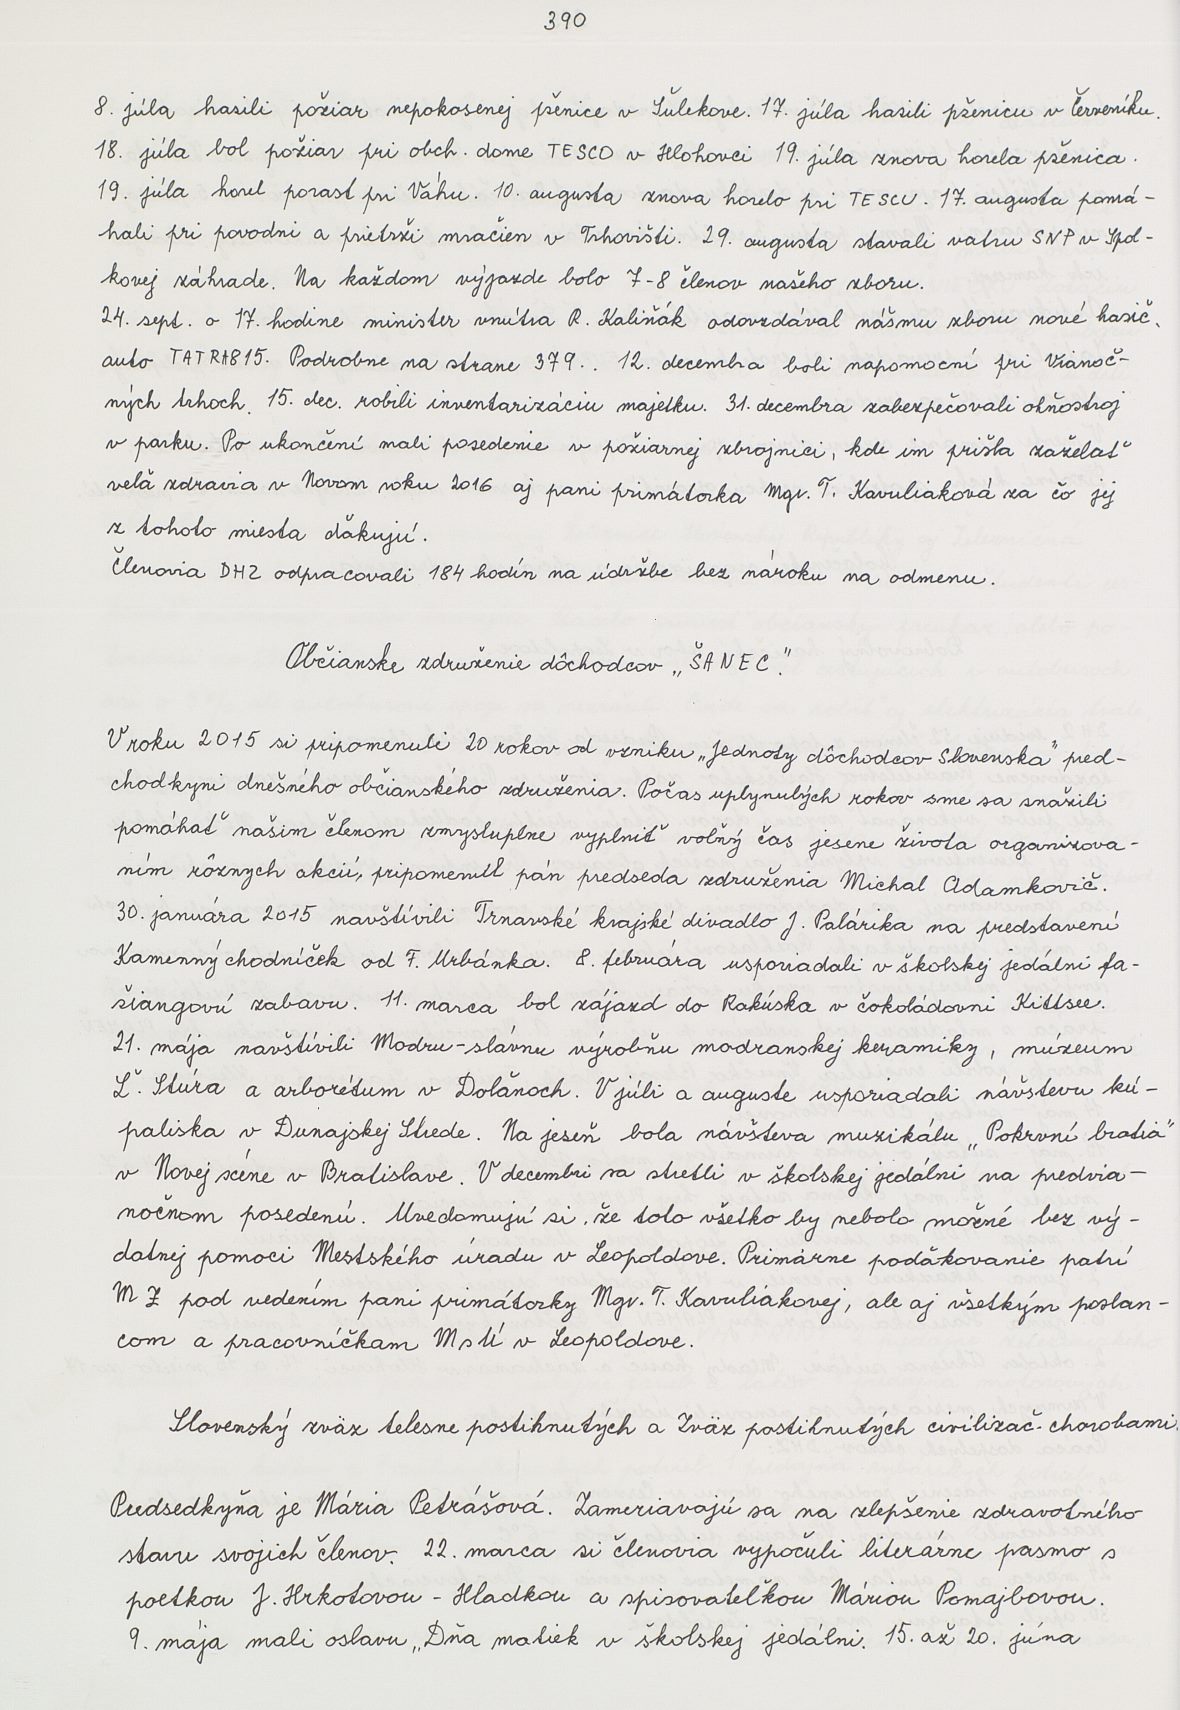 390
8. júla hasili požiar nepokosenej pšenice v Šulekove. 17. júla hasili pšenicu v Červeníku.
18. júla bol požiar pri obch. dome TESCO v Hlohovci 19. júla znova horela pšenica.
19. júla horel porast pri Váhu. 10. augusta znova horelo pri TESCU. 17. augusta pomá-
hali pri povodni a prietrži mračien v Trhovišti. 29. augusta stavali vatru SNP v Spol-
kovej záhrade. Na každom výjazde bolo 7-8 členov našeho zboru.
24. sept. o 17. hodine minister vnútra R. Kaliňák odovzdával nášmu zboru nové hasič.
auto TATRA815. Podrobne na strane 379.. 12. decembra boli napomocní pri Vianoč-
ných trhoch. 15. dec. robili inventarizáciu majetku. 31. decembra zabezpečovali ohňostroj
v parku. Po ukončení mali posedenie v požiarnej zbrojnici, kde im prišla zaželať
veľa zdravia v Novom roku 2016 aj pani primátorka Mgr. T. Kavuliaková za čo jej
z tohoto miesta ďakujú.
Členovia DHZ odpracovali 184 hodín na údržbe bez nároku na odmenu.
Občianske združenie dôchodcov „ŠANEC".
V roku 2015 si pripomenuli 20 rokov od vzniku „Jednoty dôchodcov Slovenska" pred-
chodkyni dnešného občianského združenia. Počas uplynulých rokov sme sa snažili
pomáhať našim členom zmysluplne vyplniť voľný čas jesene života organizova-
ním rôznych akcií, pripomenul pán predseda združenia Michal Adamkovič.
30. januára 2015 navštívili Trnavské krajské divadlo J. Palárika na predstavení
Kamenný chodníček od F. Urbánka. 8. februára usporiadali v školskej jedálni fa-
šiangovú zabavu. 11. marca bol zájazd do Rakúska v čokoládovni Kittsee.
21. mája navštívili Modru-slávnu výrobňu modranskej keramiky, múzeum
Ľ. Štúra a arborétum v Doľanoch. V júli a auguste usporiadali návštevu kú-
paliska v Dunajskej Strede. Na jeseň bola návšteva muzikálu „Pokrvní bratia"
v Novej scéne v Bratislave. V decembri sa stretli v školskej jedálni na predvia-
nočnom posedení. Uvedomujú si, že toto všetko by nebolo možné bez vý-
datnej pomoci Mestského úradu v Leopoldove. Primárne poďakovanie patrí
M Z pod vedením pani primátorky Mgr. T. Kavuliakovej, ale aj všetkým poslan-
com a pracovníčkam MsÚ v Leopoldove.
Slovenský zväz telesne postihnutých a Zväz postihnutých civilizač. chorobami.
Predsedkyňa je Mária Petrášová. Zameriavajú sa na zlepšenie zdravotného
stavu svojich členov. 22. marca si členovia vypočuli literárne pasmo s
poetkou J. Hrkotovou - Hladkou a spisovateľkou Máriou Pomajbovou.
9. mája mali oslavu „Dňa matiek v školskej jedálni. 15. až 20. júna